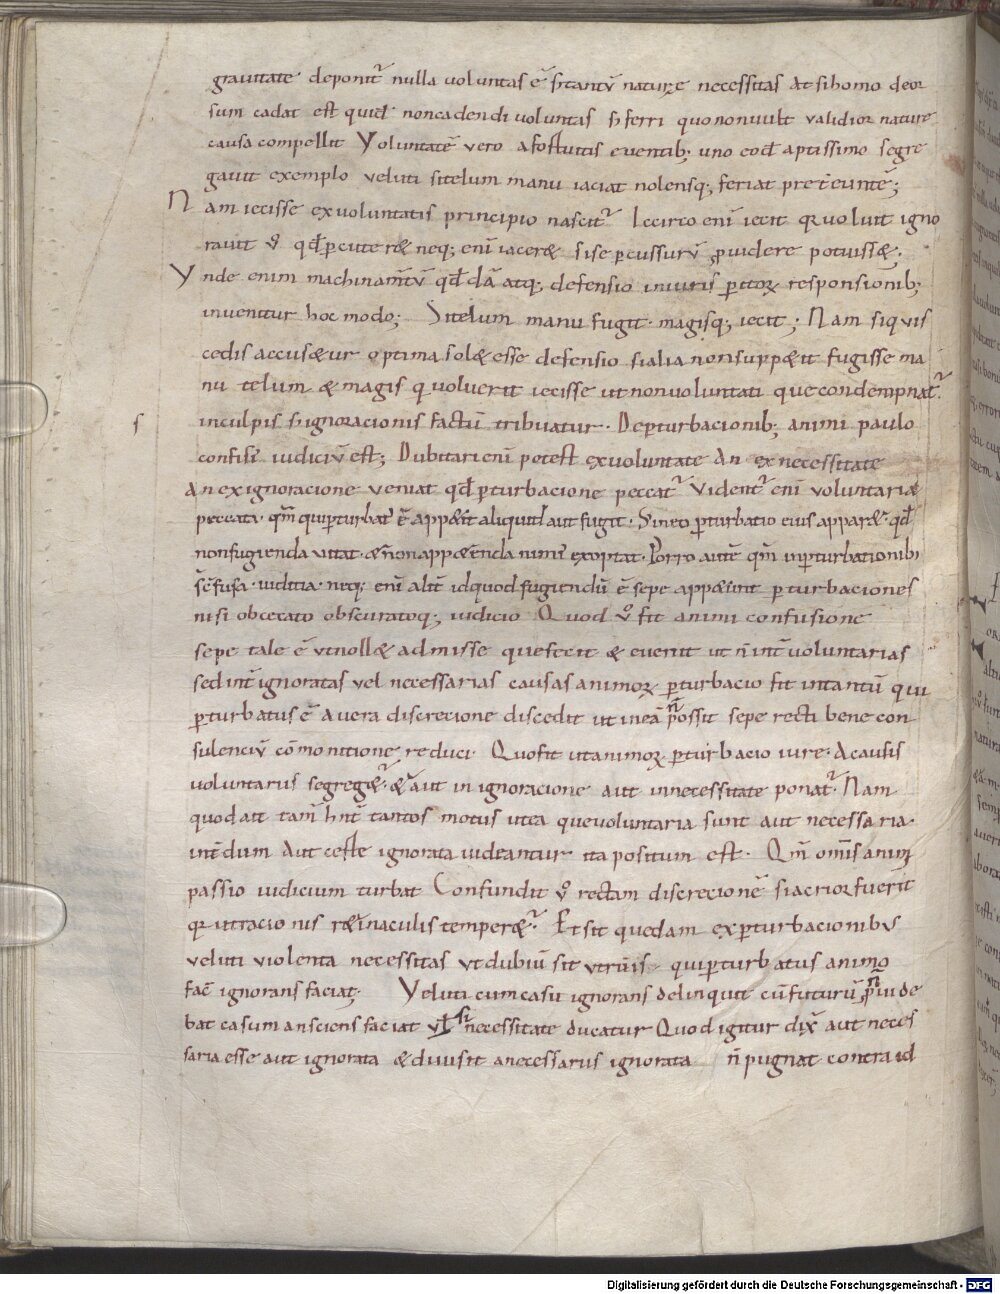 grauitate deponit᷑ nulla uoluntas ē s; tantū naturȩ necessitas At si homo deor
sum cadat est quidē non cadendi uoluntas s; ferri quo non uult ualidior nature
causa compellit Voluntatē uero a fortuitis euentib; uno eodē aptissimo segre
gauit exemplo veluti si telum manu iaciat nolensq; feriat pretereuntē;
Nam iecisse ex uoluntatis principio nascit᷑ Iccirco enī iecit qr uoluit igno
rauit ū qđ pcuteret neq; enī iaceret si se pcussurū puidere potuisset;
Vnde enim machinam̄tū qđdā atq; defensio iniuris ptitorꝝ responsionib;
inuenitur hoc modo; Si telum manu fugit magisq; iecit; Nam siquis
cedis accusetur optima solet esse defensio si alia non suppetit fugisse ma
nu telum et magis qr uoluerit iecisse ut non uoluntati que condempnat᷑
in culpis s; ignoracionis factū tribuatur. De pturbacionib; animi paulo
s
confisū iudiciū est; Dubitari enī potest ex uoluntate an ex necessitate
An ex ignoracione veniat qđ pturbacione peccat᷑ Vident᷑ enī uoluntaria
peccata. qm̄ qui pturbat᷑ ē appetit aliquid aut fugit. Sine pturbatio eius apparet qđ
non fugienda uitat. et n̄ non appetenda nimis exoptat. Porro autē qm̄ in pturbationibȝ
sē fusa iudicia. neq; enī alit̄ id quod fugiendū ē sepe appetunt pturbaciones
nisi obcecato obscuratoq; iudicio Quod ū fit animi confusione
sepe tale ē ut nollet admisse que fecerit et euenit ut n̄ int̄ uoluntarias
sed int̄ ignoratas vel necessarias causas animorꝝ pturbacio fit in tantū qui
pturbatus ē a uera discrecione discedit ut in eā n̄ possit sepe recti bene con
sulenciū cōmonitione reduci. Quo fit ut animorꝝ pturbacio iure. A causis
voluntariis segreget᷑. et aut in ignoracione aut in necessitate ponat᷑. Nam
quod ait tam̄ hn̄t tantos motus ut ea que voluntaria sunt aut necessaria.
int̄dum aut certe ignorata uideantur ita positum est. Qm̄ om̄is animi
passio iudicium turbat Confundit ū rectam discrecionē si acrior fuerit
qr ut racionis retinaculis temperet᷑. Et sit quedam ex pturbacionibus
veluti violenta necessitas vt dubiū sit utrū is qui pturbatus animo
facit ignorans faciat; Veluti cum casu ignorans delinquit cū futurū n̄ puide
bat casum an sciens faciat vl̄ s; necessitate ducatur Quod igitur dix̄ aut neces
saria esse aut ignorata et diuisit a necessariis ignorata n̄ pugnat contra id
Digitalisierung gefördert durch die Deutsche Forschungsgemeinschaft - DFG